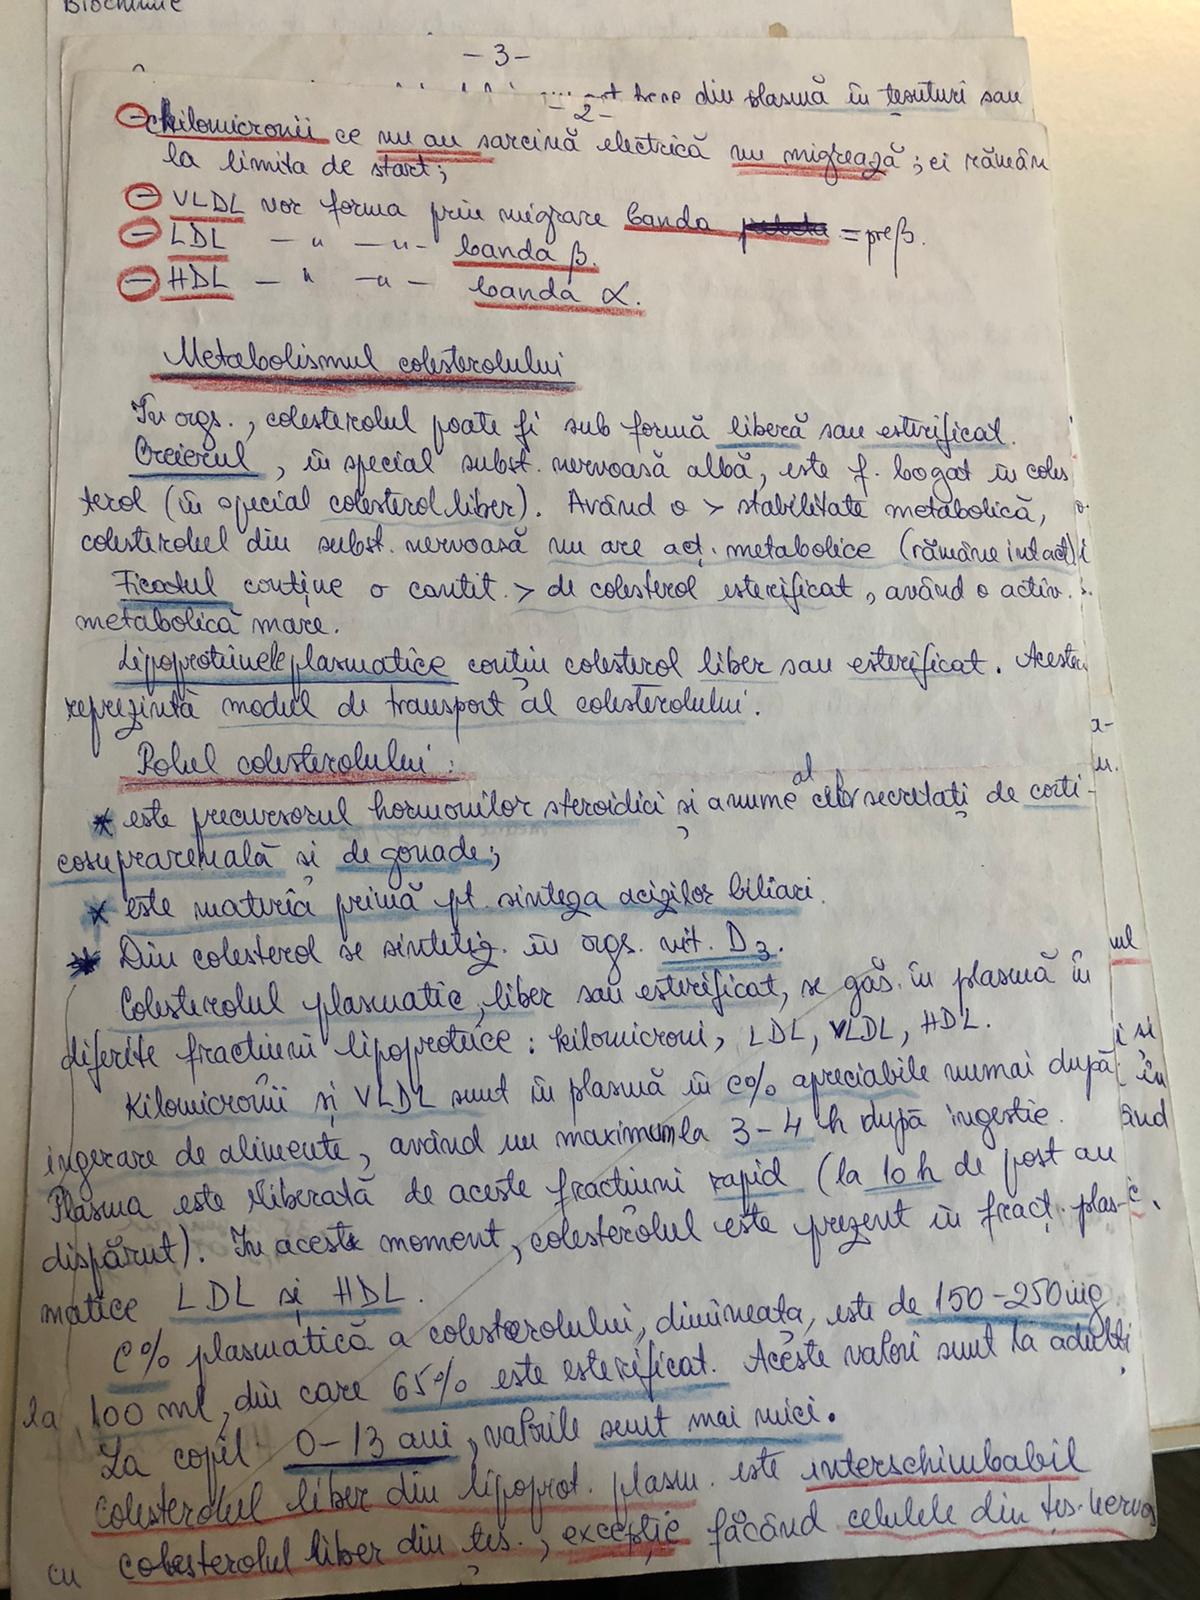 Biochimie
- 3 -
din plasmă în țesuturi sau
- 2 -
- chilomicronii ce nu au sarcină electrică nu migrează; ei rămân
la limita de start;
- VLDL vor forma prin migrare banda = preβ.
- LDL - " - " - banda β.
- HDL - " - " - banda α.
Metabolismul colesterolului
În orgs., colesterolul poate fi sub formă liberă sau esterificat.
Creierul, în special subst. nervoasă albă, este f. bogat în coles
terol (în special colesterol liber). Având o > stabilitate metabolică,
colesterolul din subst. nervoasă nu are act. metabolice (rămâne intact)
Ficatul conține o cantit. > de colesterol esterificat, având o activ.
metabolică mare.
Lipoproteinele plasmatice conțin colesterol liber sau esterificat. Acestea
reprezintă modul de transport al colesterolului.
Rolul colesterolului:
* este precursorul hormonilor steroidici și anume al celor secretați de corti-
cosuprarenală și de gonade;
* este materia primă pt. sinteza acizilor biliari.
* Din colesterol se sintetiz. în orgs. vit. D3.
Colesterolul plasmatic, liber sau esterificat, se găs. în plasmă în
diferite fracțiuni lipoproteice: kilomicroni, LDL, VLDL, HDL.
Kilomicronii și VLDL sunt în plasmă în c% apreciabile numai după
ingerare de alimente, având un maximum la 3-4 h după ingestie.
Plasma este eliberată de aceste fracțiuni rapid (la 10 h de post au
dispărut). În acest moment, colesterolul este prezent în fracț. plas-
matice LDL și HDL.
C% plasmatică a colesterolului, dimineața, este de 150-250 mg
la 100 ml, din care 65% este esterificat. Aceste valori sunt la adulți
La copil 0-13 ani, valorile sunt mai mici.
Colesterolul liber din lipoprot. plasm. este interschimbabil
cu colesterolul liber din țes., excepție făcând celulele din țes. nervos